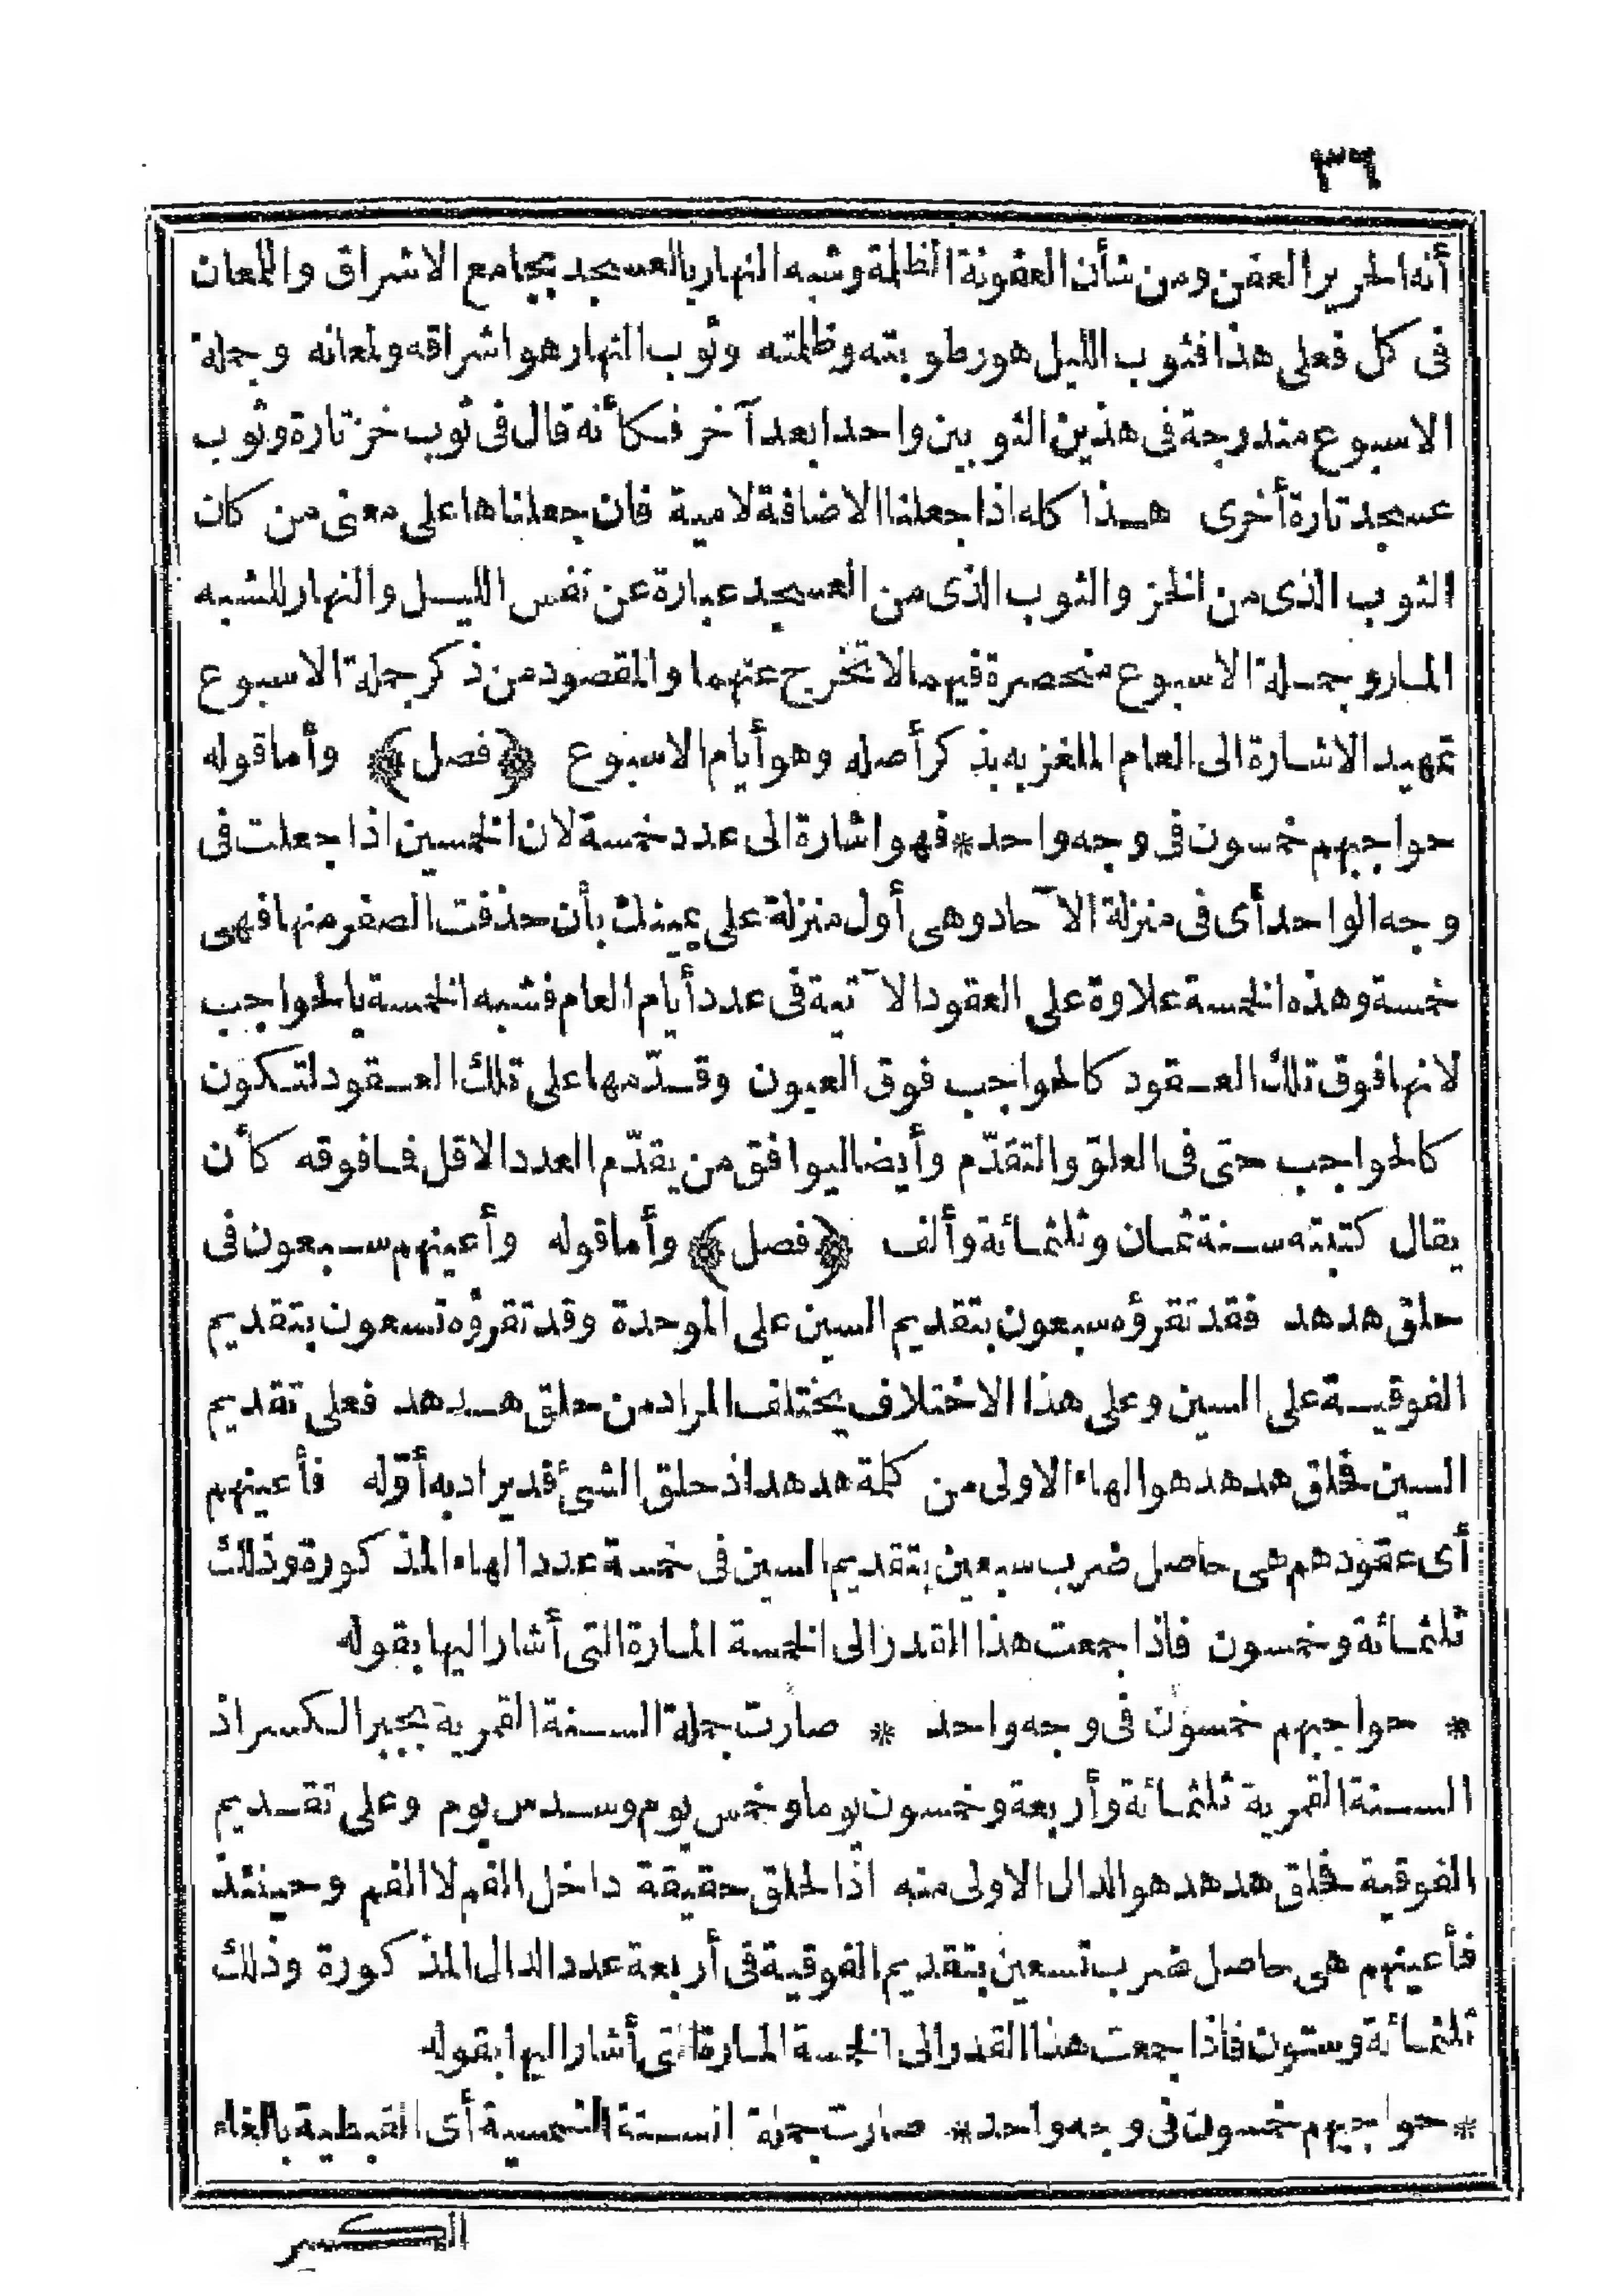 ٣٦
أنه الحرير العفن ومن شأن العفونة الظلمة وشبه النهار بالعسجد بجامع الاشراق واللمعان
فى كل فعلى هذا فثوب الليل هو رطوبته وظلمته وثوب النهار هو اشراقه ولمعانه وجملة
الاسبوع مندرجة فى هذين الثوبين واحدا بعد آخر فكأنه قال فى ثوب خز تارة وثوب
عسجد تارة أخرى هذا كله اذا جعلنا الاضافة لامية فان جعلناها على معنى من كان
الثوب الذى من الخز والثوب الذى من العسجد عبارة عن نفس الليل والنهار للشبه
المار وجملة الاسبوع منحصرة فيهما لا تخرج عنهما والمقصود من ذكر جملة الاسبوع
تمهيد الاشارة الى العام الملغز به بذكر أصله وهو أيام الاسبوع ﴿فصل﴾ وأما قوله
حواجبهم خمسون فى وجه واحد * فهو اشارة الى عدد خمسة لان الخمسين اذا جعلت فى
وجه الواحد أى فى منزلة الآحاد وهى أول منزلة على يمينك بأن حذفت الصفر منها فهى
خمسة وهذه الخمسة علاوة على العقود الآتية فى عدد أيام العام فشبه الخمسة بالحواجب
لانها فوق تلك العقود كالحواجب فوق العيون وقدّمها على تلك العقود لتكون
كالحواجب حتى فى العلوّ والتقدّم وأيضا ليوافق من يقدّم العدد الاقل فما فوقه كأن
يقال كتبته سنة ثمان وثلثمائة وألف ﴿فصل﴾ وأما قوله وأعينهم سبعون فى
حلق هدهد فقد تقرؤه سبعون بتقديم السين على الموحدة وقد تقرؤه تسعون بتقديم
الفوقية على السين وعلى هذا الاختلاف يختلف المراد من حلق هدهد فعلى تقديم
السين فحلق هدهد هو الهاء الاولى من كلمة هدهد اذ حلق الشئ قد يراد به أوّله فأعينهم
أى عقودهم هى حاصل ضرب سبعين بتقديم السين فى خمسة عدد الهاء المذكورة وذلك
ثلثمائة وخمسون فاذا جمعت هذا القدر الى الخمسة المارة التى أشار اليها بقوله
* حواجبهم خمسون فى وجه واحد * صارت جملة السنة القمرية بجبر الكسر اذ
السنة القمرية ثلثمائة وأربعة وخمسون يوما وخمس يوم وسدس يوم وعلى تقديم
الفوقية فحلق هدهد هو الدال الاولى منه اذ الحلق حقيقة داخل الفم لا الفم وحينئذ
فأعينهم هى حاصل ضرب تسعين بتقديم الفوقية فى أربعة عدد الدال المذكورة وذلك
ثلثمائة وستون فاذا جمعت هذا القدر الى الخمسة المارة التى أشار اليها بقوله
* حواجبهم خمسون فى وجه واحد * صارت جملة السنة الشمسية أى القبطية بالغاء
الكسر